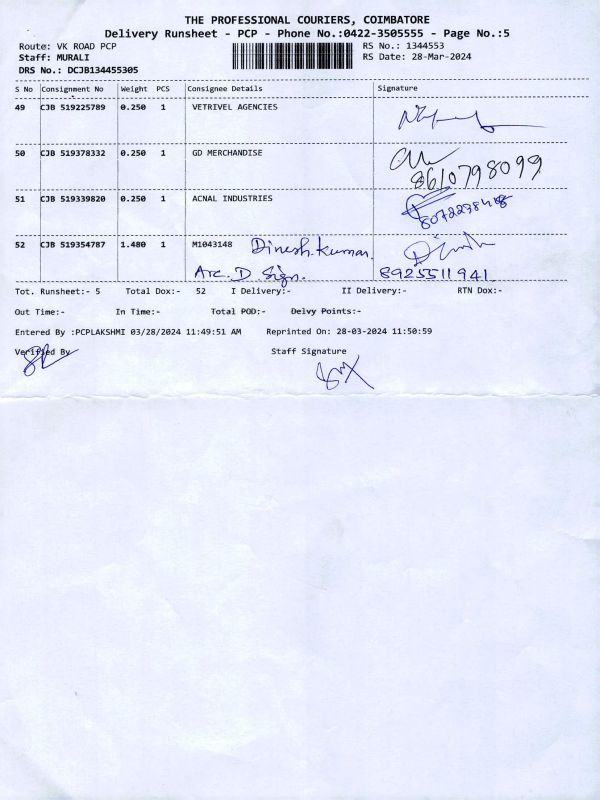 THE PROFESSIONAL COURIERS, COIMBATORE
Delivery Runsheet - PCP - Phone No.:0422-3505555 - Page No.:5
Route: VK ROAD PCP RS No.: 1344553
Staff: MURALI RS Date: 28-Mar-2024
DRS No.: DCJB134455305
S No Consignment No Weight PCS Consignee Details Signature
49 CJB 519225789 0.250 1 VETRIVEL AGENCIES
50 CJB 519378332 0.250 1 GD MERCHANDISE
8610798099
51 CJB 519339820 0.250 1 ACNAL INDUSTRIES
52 CJB 519354787 1.480 1 M1043148 Dinesh.kumar.
Arc. D. Sign. 8925511941
Tot. Runsheet:- 5 Total Dox:- 52 I Delivery:- II Delivery:- RTN Dox:-
Out Time:- In Time:- Total POD:- Delvy Points:-
Entered By :PCPLAKSHMI 03/28/2024 11:49:51 AM Reprinted On: 28-03-2024 11:50:59
Verified By Staff Signature